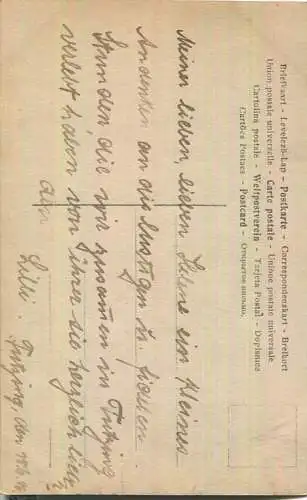 Briefkaart - Levelező-Lap - Postkarte - Correspondenzkart - Brefkort
Union postale universelle - Carte postale - Unione postale universale
Cartolina postale - Weltpostverein - Tarjeta Postal - Dopisnice
Cartões Postaes - Postcard - Открытое письмо.
Meiner lieben, lieben Helene ein kleines
Andenken an die lustigen
Stunden, die wir zusammen in Tutzing
verlebt haben von ihrer sie herzlich lieb
Lilli. Tutzing, den